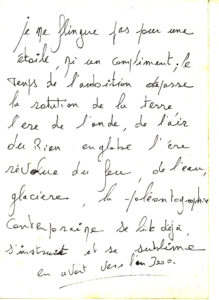 je me flingue pas pour une
étoile, ni un compliment ; le
temps de l'ambition dépasse
la rotation de la terre
l'ère de l'onde, de l'air
du Rien englobe l'ère
révolue du feu, de l'eau,
glacière, la
contemporaine se lit déjà,
s'instruit et se sublime
en avant vers l'an